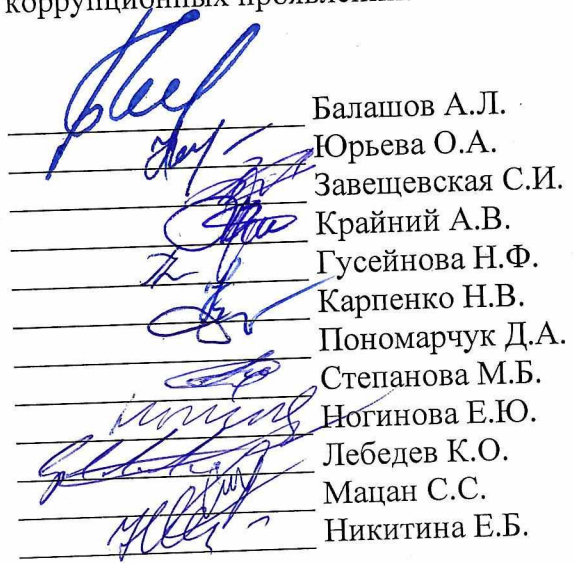 коррупционных проявлений
Балашов А.Л.
Юрьева О.А.
Завещевская С.И.
Крайний А.В.
Гусейнова Н.Ф.
Карпенко Н.В.
Пономарчук Д.А.
Степанова М.Б.
Ногинова Е.Ю.
Лебедев К.О.
Мацан С.С.
Никитина Е.Б.